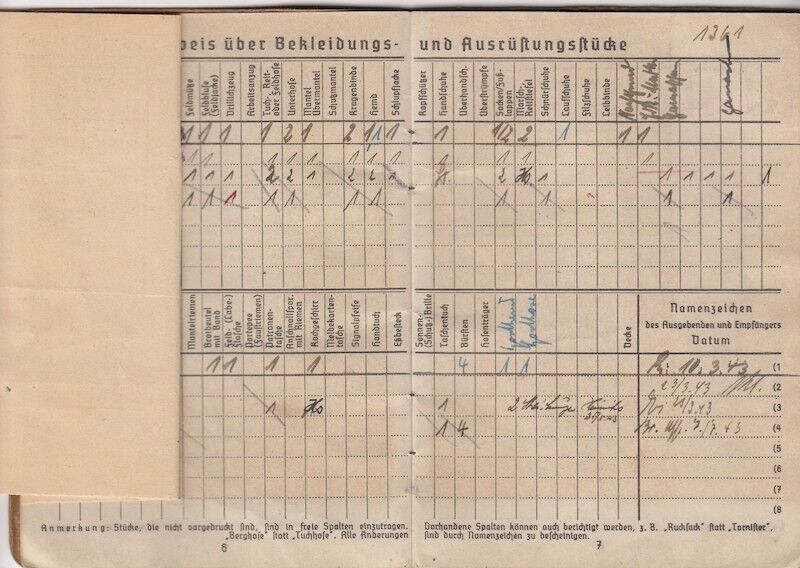 eis über Bekleidungs- und Ausrüstungsstücke
1361
Feldmütze
Feldbluse (Feldjacke)
Drillichzeug
Arbeitsanzug
Tuch-, Reit- oder Feldhose
Unterhose
Mantel Übermantel
Schutzmantel
Kragenbinde
Hemd
Schlupfjacke
Kopfschützer
Handschuhe
Überhandsch.
Überstrümpfe
Socken/Fuß-lappen
Marsch-, Reitstiefel
Schnürschuhe
Laufschuhe
Filzschuhe
Leibbinde
1 1 1 1 2 1 2 1 1 1 1 1/2 2 1 1 1
1 1 1 1 1 1 1 1 1 1 1 1
1 1 1 2 2 1 2 2 1 2 1 1 1 1 1 1
1 1 1 1 1 1 1 1 1 1 1
Mantelriemen
Brotbeutel mit Band
Feld- (Labe-) flasche
Portepee (Faustriemen)
Patronen-tasche
Anschnallspor. mit Riemen
Kochgeschirr
Meldekarten-tasche
Signalpfeife
Handtuch
Eßbesteck
Sonnen- (Schutz-) Brille
Taschentuch
Bürsten
Hosenträger
Sporthemd
Sporthose
Decke
Namenzeichen
des Ausgebenden und Empfängers
Datum
1 1 1 1 4 1 1 10.3.43 (1
23/3.43 (2
1 1 2 (3
1 4 7./7.43 (4
(5
(6
(7
(8
Anmerkung: Stücke, die nicht vorgedruckt sind, sind in freie Spalten einzutragen. Vorhandene Spalten können auch berichtigt werden, z. B. „Rucksack" statt „Tornister",
„Berghose" statt „Tuchhose". Alle Änderungen sind durch Namenzeichen zu bescheinigen.
6 7